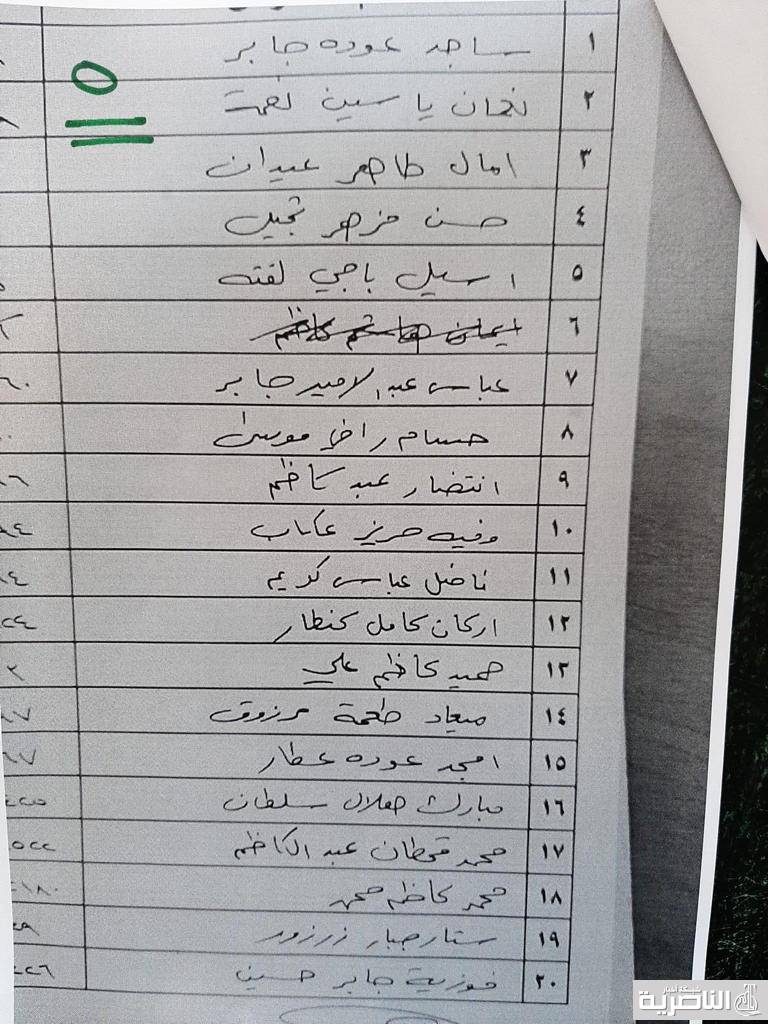 ١ ساجد عوده جابر
٥
٢ نعمان ياسين نعمت
٣ امال طاهر عيدان
٤ حسن مزهر ثجيل
٥ اسيل باجي لفته
٦ ايمان هاشم كاظم
٧ عباس عبد الامير جابر
٨ حسام راضي موسى
٩ انتضار عبد كاظم
١٠ وفيه حريز عكاب
١١ فاضل عباس كريم
١٢ اركان كامل كنطار
١٣ حميد كاظم علي
١٤ ميعاد طعمة مرزوق
١٥ امجد عوده عطار
١٦ مبارك هلال سلطان
١٧ محمد قحطان عبد الكاظم
١٨ محمد كاظم محمد
١٩ ستار جبار
٢٠ فوزية جابر حسين
شبكة أخبار
الناصرية